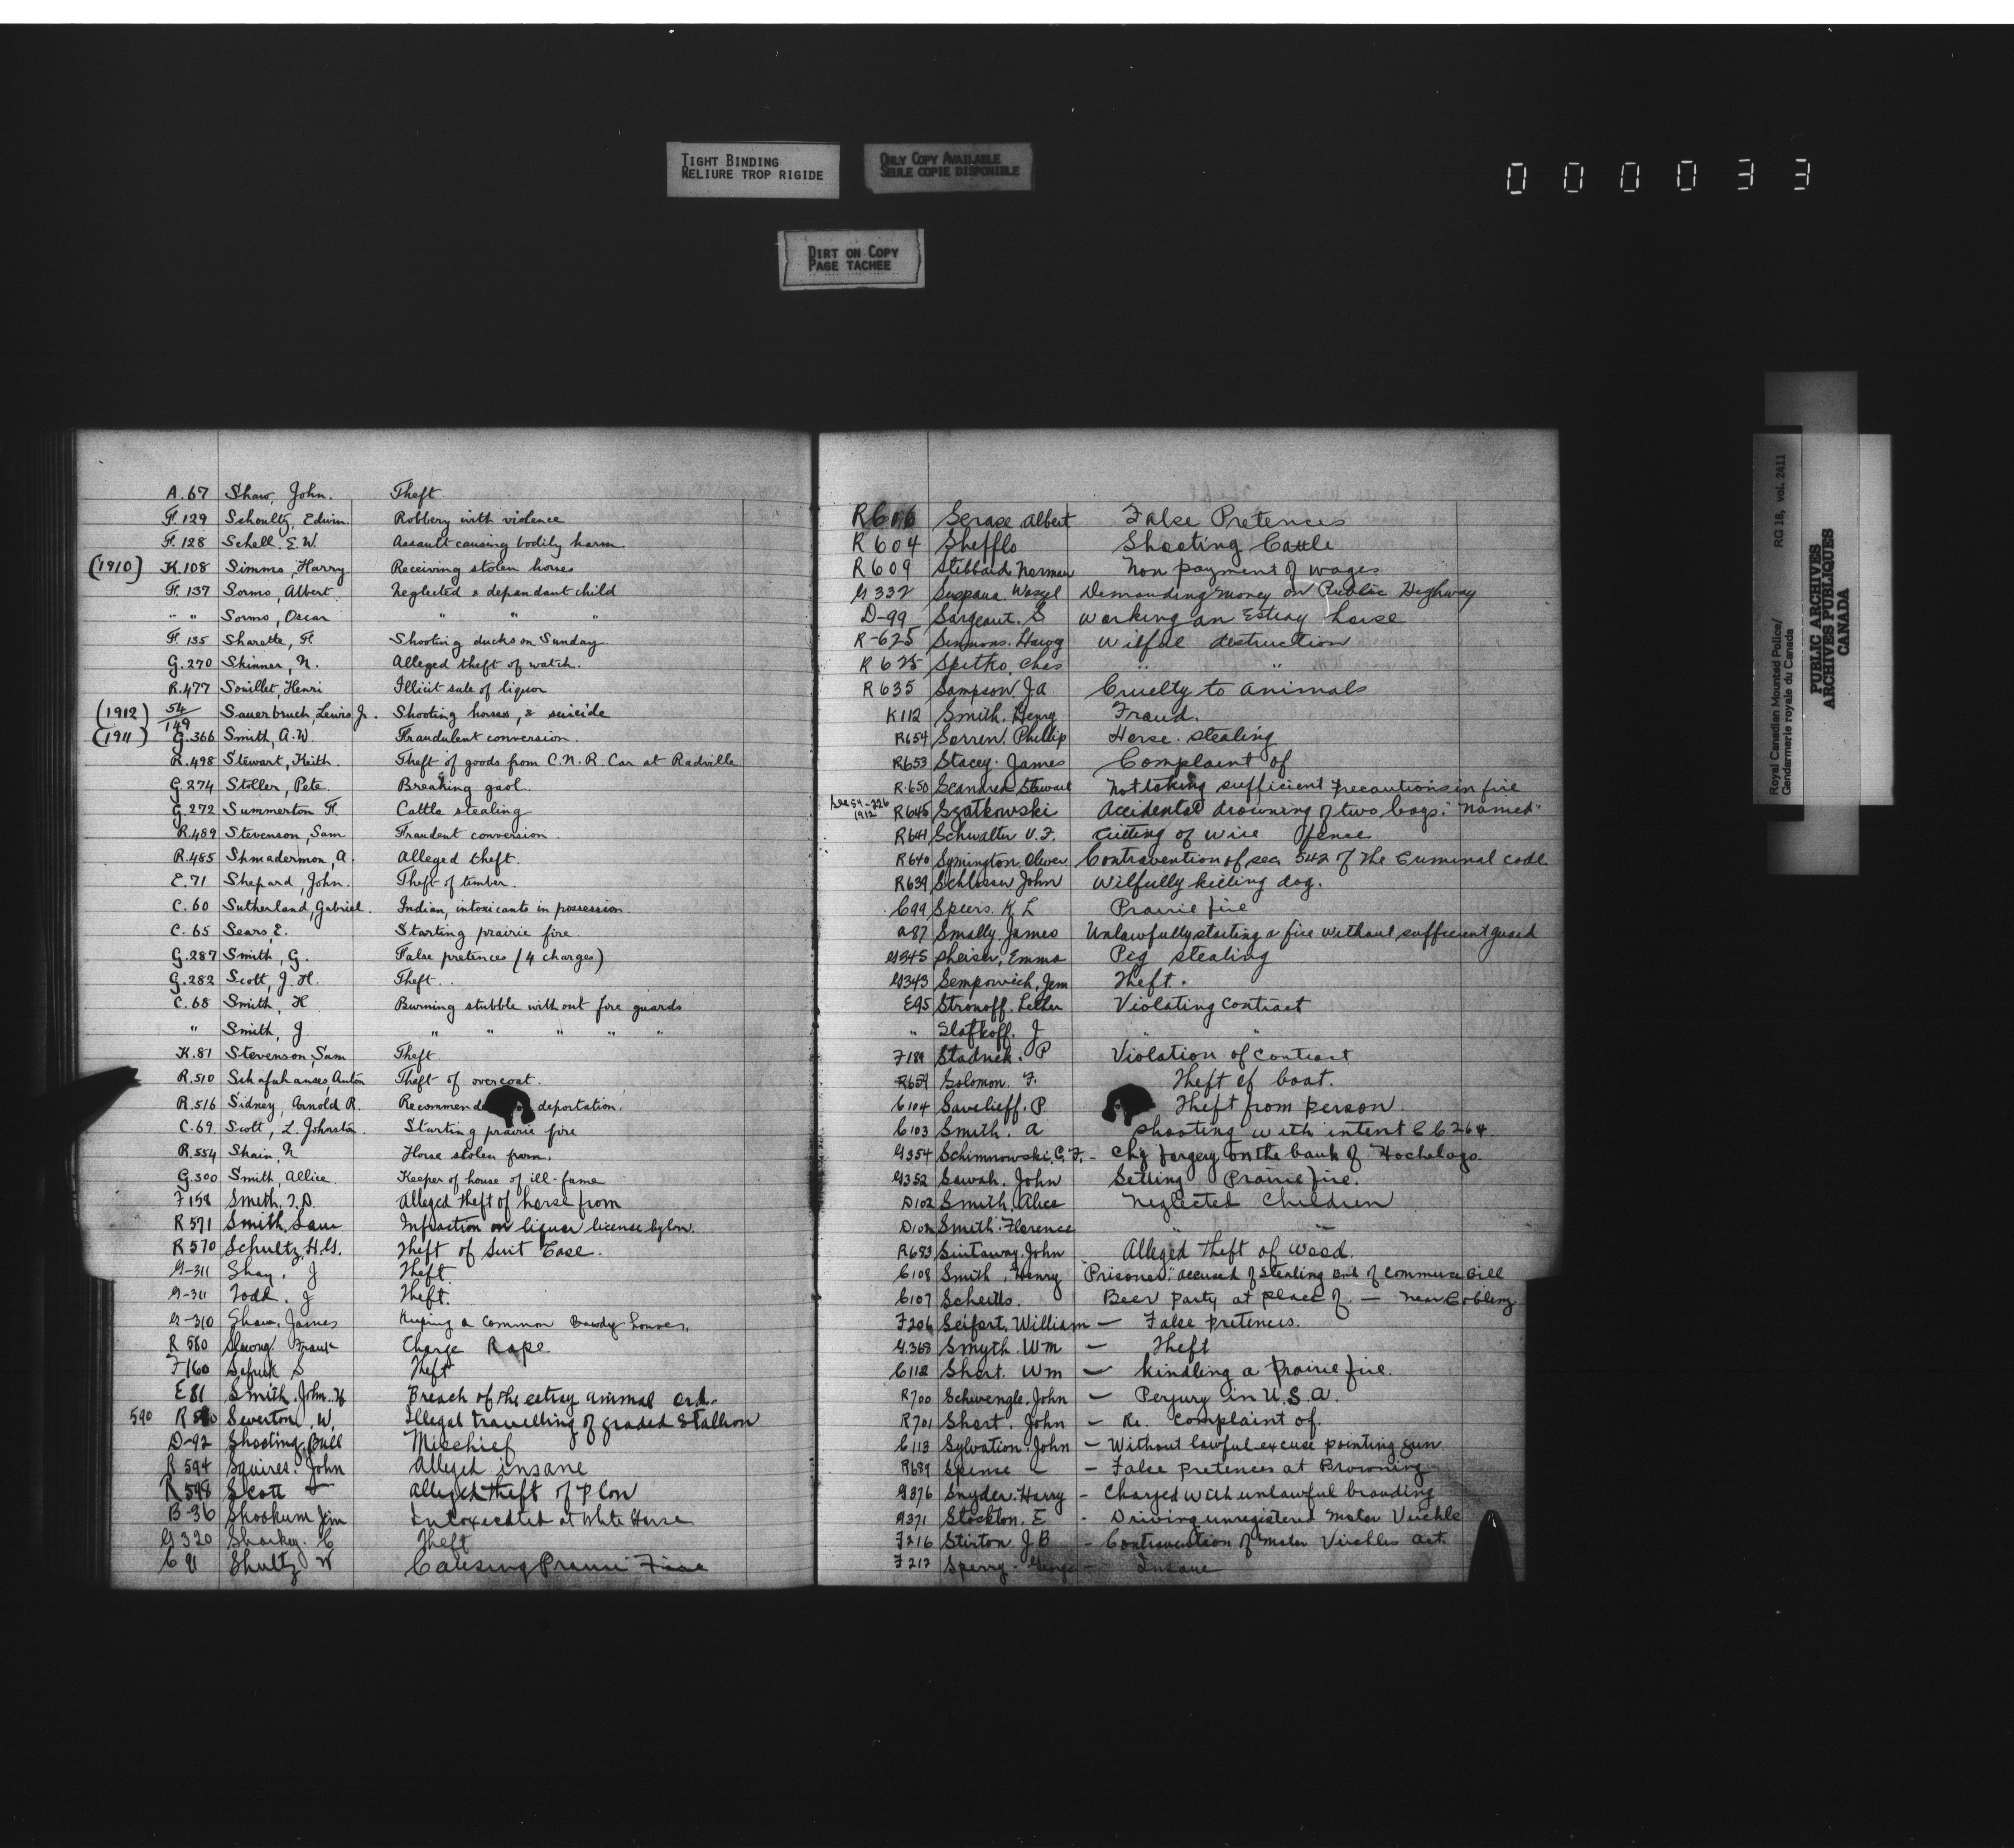 TIGHT BINDING
RELIURE TROP RIGIDE
ONLY COPY AVAILABLE
SEULE COPIE DISPONIBLE
DIRT ON COPY
PAGE TACHEE
000033
A.67 Shaw, John. Theft
F.129 Schoultz, Edwin. Robbery with violence
F.128 Schell. E.W. Assault causing bodily harm
(1910) K.108 Simms, Harry Receiving stolen horses
F.137 Sorms, Albert. Neglected & dependant child
" " Sorms, Oscar " " "
F.135 Sharette, F. Shooting ducks on Sunday
G.270 Skinner, N. Alleged theft of watch.
R.477 Souillet, Henri Illicit sale of liquor
(1912) 54/149 Sauerbruch, Lewis Jr. Shooting horses, & suicide
(1911) G.366 Smith, A.W. Fraudulent conversion.
R.498 Stewart, Keith. Theft of goods from C.N.R. Car at Radville
G.274 Stoller, Pete. Breaking gaol.
G.272 Summerton F. Cattle stealing
R.489 Stevenson, Sam Fraudent conversion.
R.485 Shmadermon, A. Alleged theft.
E.71 Shepard, John. Theft of timber.
C.60 Sutherland, Gabriel. Indian, intoxicants in possession.
C.65 Sears, E. Starting prairie fire.
G.287 Smith, G. False pretences (4 charges)
G.282 Scott, J.H. Theft.
C.68 Smith, H Burning stubble without fire guards
" Smith, J " " " " "
K.81 Stevenson, Sam Theft.
R.510 Schafahanses, Anton Theft of overcoat.
R.516 Sidney, Arnold R. Recommende deportation.
C.69 Scott, L. Johnston. Starting prairie fire
R.554 Shain, N Horse stolen from.
G.300 Smith, Allice. Keeper of house of ill-fame
F158 Smith. J.D. Alleged theft of horse from
R571 Smith, Sam Infraction on liquor license bylaw.
R570 Schultz, H.G. Theft of Suit Case.
G-311 Shay. J Theft
G-311 Todd. J Theft.
G-310 Shaw, James Keeping a common Bawdy houses.
R580 Frank Charge Rape
F160 S Theft
E81 Smith. John. H Breach of the estray animal ord.
590 R Severton, W. Illegal travelling of graded Stallion
D-92 Shooting Bull Mischief
R594 Squires. John Alleged insane
R598 Scott Alleged theft of plow
B-36 Shookum Jim Intoxicated at White Horse
G320 Sharkey. C Theft
C91 Shultz W Causing Prairie Fire
R606 Serase Albert False Pretences
R604 Shefflo Shooting Cattle
R609 Stibbard Norman Non payment of wages
G332 Demanding money on Public Highway
D-99 Sargeant. S Working an Estray horse
R-625 Simmons. Harry Wilful destruction
R625 Spetko, Chas " "
R635 Sampson. J.A Cruelty to animals
K112 Smith. Henry Fraud.
R654 Sorren. Phillip Horse stealing
R653 Stacey. James Complaint of
R.650 Stewart Not taking sufficient precautions in fire
See 54-226 1912 R645 Szatkowski Accidental drowning of two boys: "Named"
R641 Schwalter V.F. Cutting of wire fence
R640 Symington. Oliver Contravention of sec 542 of the Criminal code
R639 Schlosser John Wilfully killing dog.
C99 Speers. K.L Prairie fire
A87 Smally. James Unlawfully starting a fire without sufficient guard
G345 Sheiser, Emma Pig stealing
G343 Sempowich, Jem Theft.
E95 Stronoff. Violating contract
" Slafkoff. J " "
F189 Stadnek. P Violation of contract
R659 Solomon. F. Theft of boat.
C104 Savelieff. P. Theft from person.
C103 Smith. A Shooting with intent CC264.
G354 Schimnowski. C.F. - Chg forgery on the bank of Hochelaga.
G352 Sawah. John Setting Prairie fire.
D102 Smith. Alice Neglected Children
D102 Smith. Florence " "
R683 Sintaway. John Alleged theft of wood.
C108 Smith, Henry "Prisoner," accused of stealing Bnk of Commerce Bill
C107 Scheitts. Beer party at place of. — near Cobleng
F206 Seifert, William — False pretences.
G.368 Smyth. Wm — Theft
C112 Short. Wm — Kindling a Prairie fire.
R700 Schwengle. John — Perjury in U.S.A.
R701 Short. John — Re. Complaint of.
C113 Sylvation. John — Without lawful excuse pointing gun.
R689 Spense — False pretences at Browning
G376 Snyder. Harry — Charged with unlawful branding
G371 Stockton. E - Driving unregistered Motor Veichle
F216 Stirton. J B - Contravention of Motor Veichles act.
F217 Sperry. George — Insane
Royal Canadian Mounted Police/
Gendarmerie royale du Canada
RG 18, vol. 2411
PUBLIC ARCHIVES
ARCHIVES PUBLIQUES
CANADA